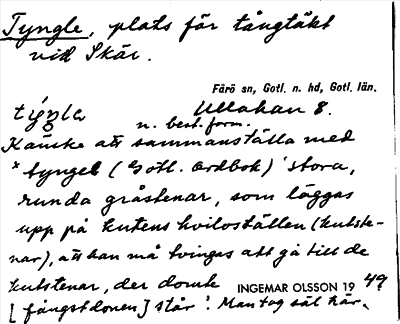 Tyngle, plats för tångtäkt
vid Skär.
Fårö sn, Gotl. n. hd, Gotl. län.
Ullahau 8.
týngla
n. best. form.
Kanske att sammanställa med
*tyngel (Gotl. ordbok) 'stora,
runda gråstenar, som läggas
upp på kutens hviloställen (kutste-
nar), att han må tvingas att gå till de
kutstenar, der
[fångstdonen] står'. Man tog säl här.
INGEMAR OLSSON 1949